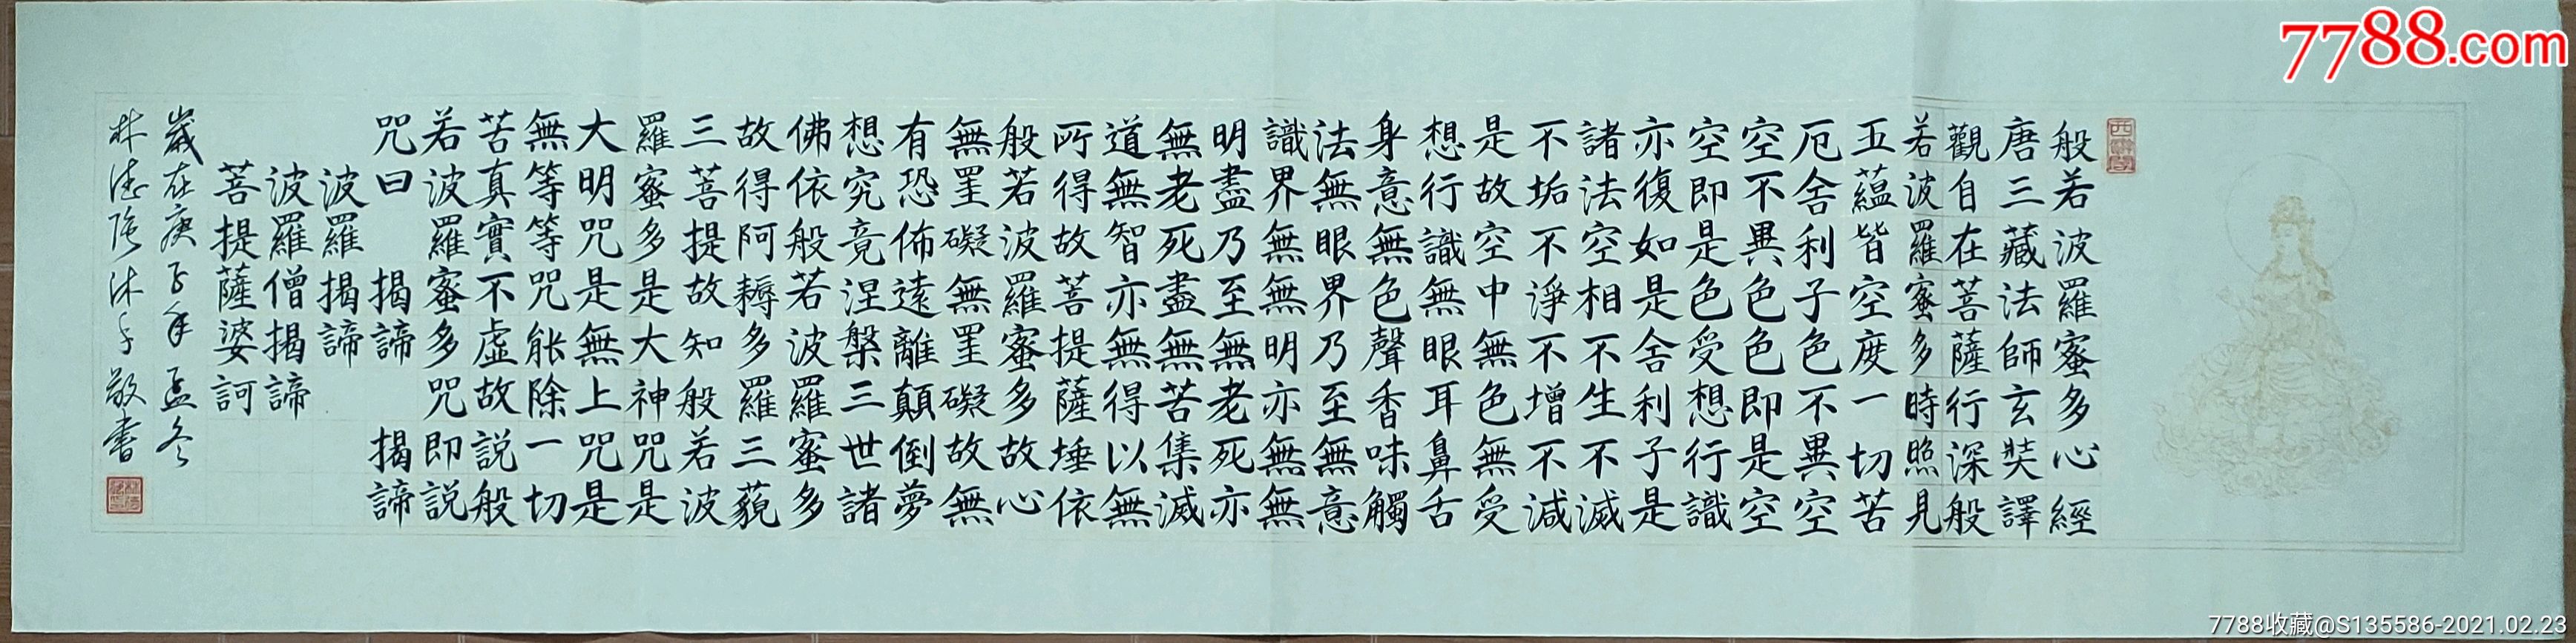 般若波羅蜜多心經
唐三藏法師玄奘譯
觀自在菩薩行深般
若波羅蜜多時照見
五蘊皆空度一切苦
厄舍利子色不異空
空不異色色即是空
空即是色受想行識
亦復如是舍利子是
諸法空相不生不滅
不垢不淨不增不減
是故空中無色無受
想行識無眼耳鼻舌
身意無色聲香味觸
法無眼界乃至無意
識界無無明亦無無
明盡乃至無老死亦
無老死盡無苦集滅
道無智亦無得以無
所得故菩提薩埵依
般若波羅蜜多故心
無罣礙無罣礙故無
有恐佈遠離顛倒夢
想究竟涅槃三世諸
佛依般若波羅蜜多
故得阿耨多羅三藐
三菩提故知般若波
羅蜜多是大神咒是
大明咒是無上咒是
無等等咒能除一切
苦真實不虛故說般
若波羅蜜多咒即說
咒曰 揭諦 揭諦
波羅揭諦
波羅僧揭諦
菩提薩婆訶
歲在庚子年孟冬
林德隆沐手敬書
7788.com
7788收藏@S135586-2021.02.23